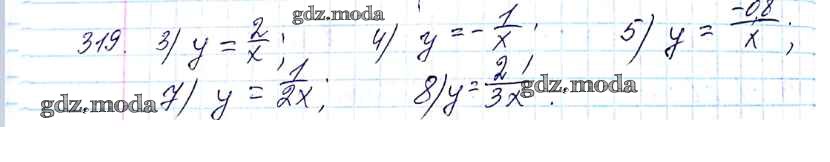 gdz.moda
319. 3) y = 2/x; 4) y = -1/x; 5) y = -0,8/x;
gdz.moda 7) y = 1/2x; 8) y = 2/3x. gdz.moda